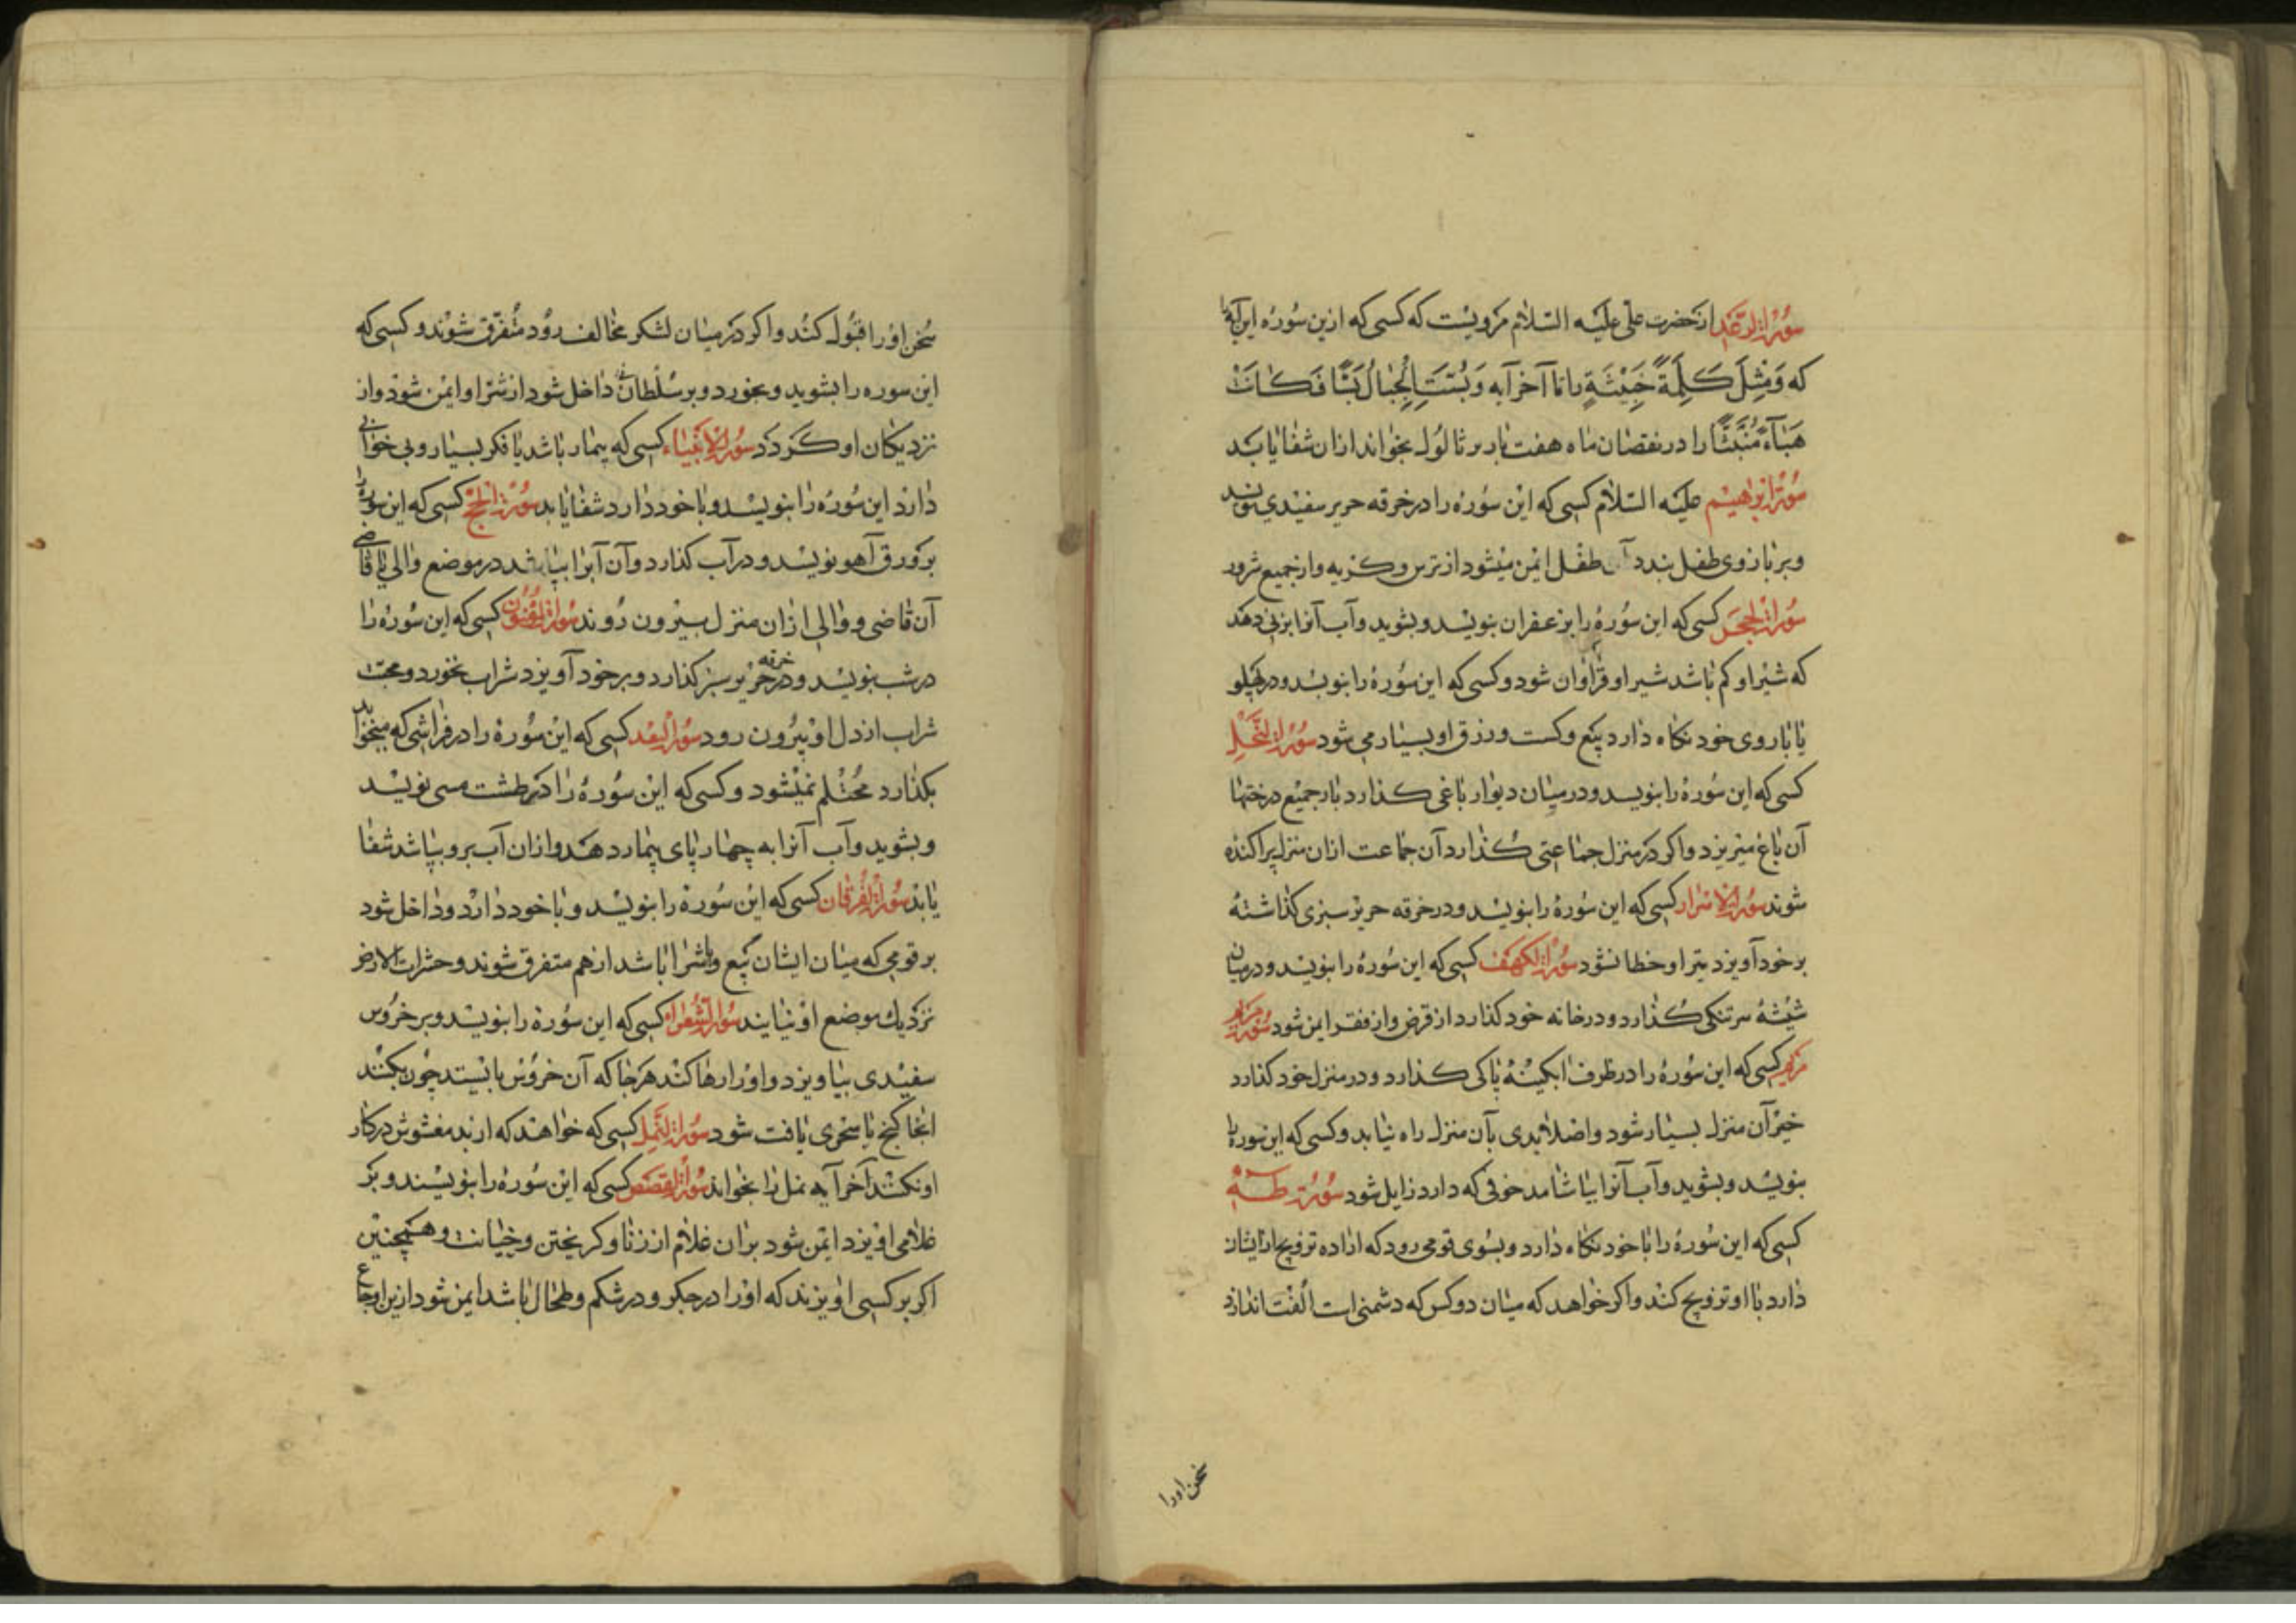 سورة الرعد از حضرت علی علیه السلام مرویست که کسی که ازین سوره این آیه را
که وَمَثَلُ کَلِمَةٍ خَبِیثَةٍ را تا آخر آیه وَبُسَّتِ الْجِبَالُ بَسًّا فَکَانَتْ
هَبَآءً مُنْبَثًّا را در نقصان ماه هفت بار بر ثالول بخواند ازان شفا یابد
سورة ابراهیم علیه السلام کسی که این سوره را در خرقه حریر سفیدی نویسد
و بر بازوی طفل بندد آن طفل ایمن میشود از ترس و کریه و از جمیع شرور
سورة الحجر کسی که این سوره را بزعفران بنویسد و بشوید و آب آنرا بزنی دهد
که شیر او کم باشد شیر او فراوان شود و کسی که این سوره را بنویسد و در پهلو
یا باروی خود نکاه دارد بیع و کسب و رزق او بسیار می شود سورة النحل
کسی که این سوره را بنویسد و در میان دیوار باغی کذارد بار جمیع درختها
آن باغ میریزد و اکر در منزل جماعتی کذارد آن جماعت ازان منزل پراکنده
شوند سورة الاسراء کسی که این سوره را بنویسد و در خرقه حریر سبزی کذاشته
بر خود آویزد تیر او خطا نشود سورة الکهف کسی که این سوره را بنویسد و در میان
شیشهٔ سر تنکی کذارد و در خانه خود کذارد از قرض و از فقر ایمن شود سورة مریم
مریم کسی که این سوره را در ظرف ابکینهٔ پاکی کذارد و در منزل خود کذارد
خیر آن منزل بسیار شود و اصلا بدی بآن منزل راه نیابد و کسی که این سوره را
بنویسد و بشوید و آب آنرا بیاشامد خوفی که دارد زایل شود سورة طه
کسی که این سوره را با خود نکاه دارد و بسوی قومی رود که اراده تزویج از ایشان
دارد با او تزویج کنند و اکر خواهد که میان دو کس که دشمنی است الفت اندازد
سخن اورا
سخن اورا قبول کنند و اکر در میان لشکر مخالف رود متفرق شوند و کسی که
این سوره را بشوید و بخورد و بر سلطان داخل شود از شر او ایمن شود و از
نزدیکان او کردد سورة الانبیاء کسی که بیمار باشد یا فکر بسیار و بی خوابی
دارد این سوره را بنویسد و با خود دارد شفا یابد سورة الحج کسی که این سوره را
بر ورق آهو نویسد و در آب کذارد و آن آبرا بپاشد در موضع والی یا قاضی
آن قاضی و والی ازان منزل بیرون روند سورة المؤمنون کسی که این سوره را
در شب بنویسد و در خرقه حریر سبز کذارد و بر خود آویزد شراب نخورد و محبت
شراب از دل او بیرون رود سورة کسی که این سوره را در فراشی که میخوابد
بکذارد محتلم نمیشود و کسی که این سوره را در طشت مسی نویسد
و بشوید و آب آنرا به چهار پای بیمار دهد و ازان آب برو بپاشد شفا
یابد سورة الفرقان کسی که این سوره را بنویسد و با خود دارد و داخل شود
بر قومی که میان ایشان بیع و یا شرا باشد از هم متفرق شوند و حشرات الارض
نزدیك موضع او نیایند سورة الشعراء کسی که این سوره را بنویسد و بر خروس
سفیدی بیاویزد و اورا رها کند هر جا که آن خروس بایستد چون بکنند
انجا کنج یا سحری یافت شود سورة النمل کسی که خواهند که ارند مغشوش در کار
او نکنند آخر آیه نمل را بخواند سورة القصص کسی که این سوره را بنویسند و بر
غلامی اویزد ایمن شود بران غلام از زنا و کریختن و خیانت و همچنین
اکر بر کسی اویزند که اورا در جکر و در شکم و طحال باشد ایمن شود ازین اوجاع